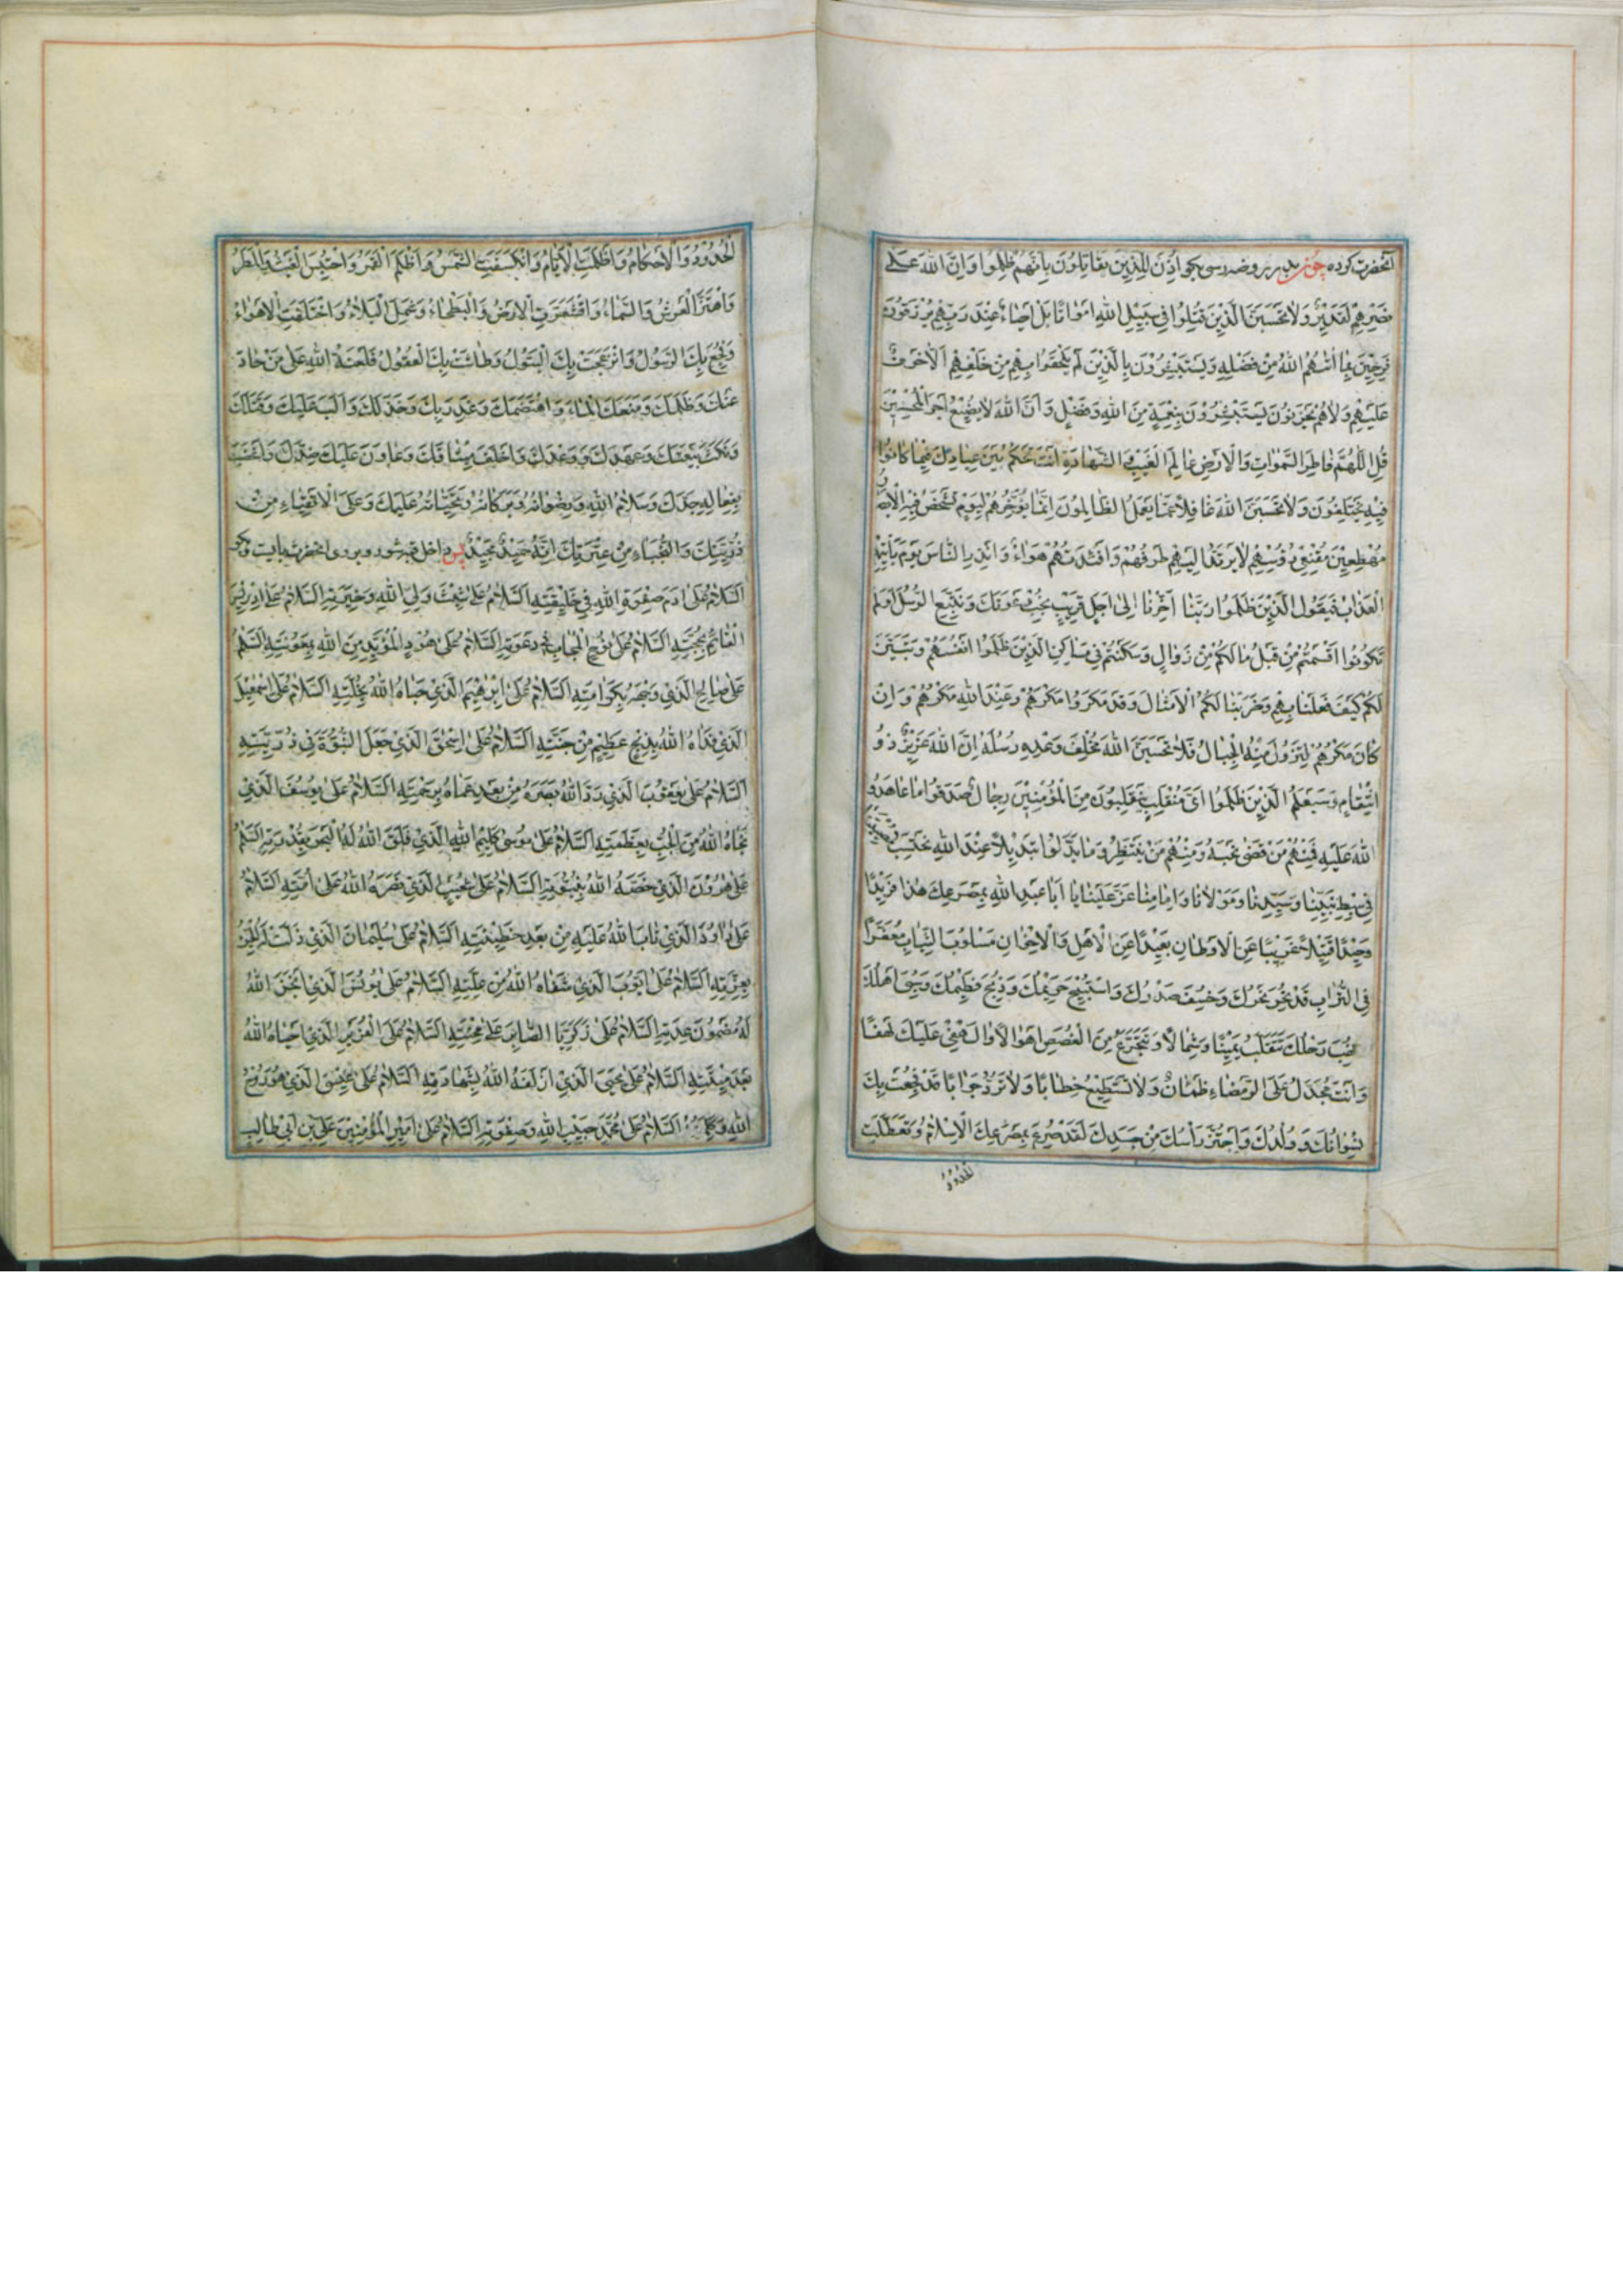 آنحضرت کرده چون بدر روضه رسی بگو اُذِنَ لِلَّذِينَ يُقَاتِلُونَ بِأَنَّهُمْ ظُلِمُوا وَاِنَّ اللّٰهَ عَلٰى
نَصْرِهِمْ لَقَدِيرٌ وَلَا تَحْسَبَنَّ الَّذِينَ قُتِلُوا فِي سَبِيلِ اللّٰهِ اَمْوَاتًا بَلْ اَحْيَاءٌ عِنْدَ رَبِّهِمْ يُرْزَقُونَ
فَرِحِينَ بِمَا اٰتٰهُمُ اللّٰهُ مِنْ فَضْلِهِ وَيَسْتَبْشِرُونَ بِالَّذِينَ لَمْ يَلْحَقُوا بِهِمْ مِنْ خَلْفِهِمْ اَلَّا خَوْفٌ
عَلَيْهِمْ وَلَا هُمْ يَحْزَنُونَ يَسْتَبْشِرُونَ بِنِعْمَةٍ مِنَ اللّٰهِ وَفَضْلٍ وَاَنَّ اللّٰهَ لَا يُضِيعُ اَجْرَ الْمُحْسِنِينَ
قُلِ اللّٰهُمَّ فَاطِرَ السَّمٰوَاتِ وَالْاَرْضِ عَالِمَ الْغَيْبِ وَالشَّهَادَةِ اَنْتَ تَحْكُمُ بَيْنَ عِبَادِكَ فِيمَا كَانُوا
فِيهِ يَخْتَلِفُونَ وَلَا تَحْسَبَنَّ اللّٰهَ غَافِلًا عَمَّا يَعْمَلُ الظَّالِمُونَ اِنَّمَا يُؤَخِّرُهُمْ لِيَوْمٍ تَشْخَصُ فِيهِ الْاَبْصَارُ
مُهْطِعِينَ مُقْنِعِي رُءُوسِهِمْ لَا يَرْتَدُّ اِلَيْهِمْ طَرْفُهُمْ وَاَفْئِدَتُهُمْ هَوَاءٌ وَاَنْذِرِ النَّاسَ يَوْمَ يَأْتِيهِمُ
الْعَذَابُ فَيَقُولُ الَّذِينَ ظَلَمُوا رَبَّنَا اَخِّرْنَا اِلٰى اَجَلٍ قَرِيبٍ نُجِبْ دَعْوَتَكَ وَنَتَّبِعِ الرُّسُلَ اَوَلَمْ
تَكُونُوا اَقْسَمْتُمْ مِنْ قَبْلُ مَا لَكُمْ مِنْ زَوَالٍ وَسَكَنْتُمْ فِي مَسَاكِنِ الَّذِينَ ظَلَمُوا اَنْفُسَهُمْ وَتَبَيَّنَ
لَكُمْ كَيْفَ فَعَلْنَا بِهِمْ وَضَرَبْنَا لَكُمُ الْاَمْثَالَ وَقَدْ مَكَرُوا مَكْرَهُمْ وَعِنْدَ اللّٰهِ مَكْرُهُمْ وَاِنْ
كَانَ مَكْرُهُمْ لِتَزُولَ مِنْهُ الْجِبَالُ فَلَا تَحْسَبَنَّ اللّٰهَ مُخْلِفَ وَعْدِهِ رُسُلَهُ اِنَّ اللّٰهَ عَزِيزٌ ذُو
انْتِقَامٍ وَسَيَعْلَمُ الَّذِينَ ظَلَمُوا اَيَّ مُنْقَلَبٍ يَنْقَلِبُونَ مِنَ الْمُؤْمِنِينَ رِجَالٌ صَدَقُوا مَا عَاهَدُوا
اللّٰهَ عَلَيْهِ فَمِنْهُمْ مَنْ قَضٰى نَحْبَهُ وَمِنْهُمْ مَنْ يَنْتَظِرُ وَمَا بَدَّلُوا تَبْدِيلًا عِنْدَ اللّٰهِ نَحْتَسِبُ
فِي سِبْطِ نَبِيِّنَا وَسَيِّدِنَا وَمَوْلَانَا وَاِمَامِنَا عَزَّ عَلَيْنَا يَا اَبَا عَبْدِ اللّٰهِ بِمَصْرَعِكَ هٰذَا فَرِيدًا
وَحِيدًا قَتِيلًا غَرِيبًا عَنِ الْاَوْطَانِ بَعِيدًا عَنِ الْاَهْلِ وَالْاِخْوَانِ مَسْلُوبَ الثِّيَابِ مُعَفَّرًا
فِي التُّرَابِ قَدْ نُحِرَ نَحْرُكَ وَخُسِفَ صَدْرُكَ وَاسْتُبِيحَ حَرِيمُكَ وَذُبِحَ فَطِيمُكَ وَسُبِيَ اَهْلُكَ
نُهِبَ رَحْلُكَ تَتَقَلَّبُ يَمِينًا وَشِمَالًا وَتَتَجَرَّعُ مِنَ الْغُصَصِ اَهْوَالًا لَهْفِي عَلَيْكَ لَهْفًا
وَاَنْتَ مُجَدَّلٌ عَلَى الرَّمْضَاءِ ظَمْاٰنٌ وَلَا تَسْتَطِيعُ خِطَابًا وَلَا تَرُدُّ جَوَابًا قَدْ فُجِعَتْ بِكَ
نِسْوَانُكَ وَوُلْدُكَ وَاحْتُزَّ رَأْسُكَ مِنْ جَسَدِكَ لَقَدْ صُرِعَ بِمَصْرَعِكَ الْاِسْلَامُ وَتَعَطَّلَتِ
الْحُدُودُ
الْحُدُودُ وَالْاَحْكَامُ وَاَظْلَمَتِ الْاَيَّامُ وَانْكَسَفَتِ الشَّمْسُ وَاَظْلَمَ الْقَمَرُ وَاحْتُبِسَ الْغَيْثُ وَالْمَطَرُ
وَاهْتَزَّ الْعَرْشُ وَالسَّمَاءُ وَاقْشَعَرَّتِ الْاَرْضُ وَالْبَطْحَاءُ وَشَمِلَ الْبَلَاءُ وَاخْتَلَفَتِ الْاَهْوَاءُ
وَفُجِعَ بِكَ الرَّسُولُ وَانْزَعَجَتْ بِكَ الْبَتُولُ وَطَاشَتْ بِكَ الْعُقُولُ فَلَعْنَةُ اللّٰهِ عَلٰى مَنْ حَادَ
عَنْكَ وَظَلَمَكَ وَمَنَعَكَ الْمَاءَ وَاهْتَضَمَكَ وَغَدَرَ بِكَ وَخَذَلَكَ وَاَلَّبَ عَلَيْكَ وَقَتَلَكَ
وَنَكَثَ بَيْعَتَكَ وَعَهْدَكَ وَوَعْدَكَ وَاَخْلَفَ مِيثَاقَكَ وَعَاوَنَ عَلَيْكَ ضِدَّكَ وَاَغْضَبَ
بِفِعَالِهِ جَدَّكَ وَسَلَامُ اللّٰهِ وَرِضْوَانُهُ وَبَرَكَاتُهُ وَتَحِيَّاتُهُ عَلَيْكَ وَعَلَى الْاَتْقِيَاءِ مِنْ
ذُرِّيَّتِكَ وَالنُّجَبَاءِ مِنْ عِتْرَتِكَ اِنَّهُ حَمِيدٌ مَجِيدٌ پس داخل قبه شو و بر روی آنحضرت بایست و بگو
اَلسَّلَامُ عَلٰى اٰدَمَ صَفْوَةِ اللّٰهِ فِي خَلِيقَتِهِ اَلسَّلَامُ عَلٰى شَيْثٍ وَلِيِّ اللّٰهِ وَخِيَرَتِهِ اَلسَّلَامُ عَلٰى اِدْرِيسَ
الْقَائِمِ بِحُجَّتِهِ اَلسَّلَامُ عَلٰى نُوحٍ الْمُجَابِ فِي دَعْوَتِهِ اَلسَّلَامُ عَلٰى هُودٍ الْمُؤَيَّدِ مِنَ اللّٰهِ بِمَعُونَتِهِ اَلسَّلَامُ
عَلٰى صَالِحٍ الَّذِي تَوَّجَهُ بِكَرَامَتِهِ اَلسَّلَامُ عَلٰى اِبْرٰهِيمَ الَّذِي حَبَاهُ اللّٰهُ بِخُلَّتِهِ اَلسَّلَامُ عَلٰى اِسْمٰعِيلَ
الَّذِي فَدَاهُ اللّٰهُ بِذِبْحٍ عَظِيمٍ مِنْ جَنَّتِهِ اَلسَّلَامُ عَلٰى اِسْحٰقَ الَّذِي جَعَلَ النُّبُوَّةَ فِي ذُرِّيَّتِهِ
اَلسَّلَامُ عَلٰى يَعْقُوبَ الَّذِي رَدَّ اللّٰهُ بَصَرَهُ مِنْ بَعْدِ عَمَاهُ بِرَحْمَتِهِ اَلسَّلَامُ عَلٰى يُوسُفَ الَّذِي
نَجَّاهُ اللّٰهُ مِنَ الْجُبِّ بِعَظَمَتِهِ اَلسَّلَامُ عَلٰى مُوسٰى كَلِيمِ اللّٰهِ الَّذِي فَلَقَ اللّٰهُ لَهُ الْبَحْرَ بِقُدْرَتِهِ اَلسَّلَامُ
عَلٰى هٰرُونَ الَّذِي خَصَّهُ اللّٰهُ بِنُبُوَّتِهِ اَلسَّلَامُ عَلٰى شُعَيْبٍ الَّذِي نَصَرَهُ اللّٰهُ عَلٰى اُمَّتِهِ اَلسَّلَامُ
عَلٰى دَاوُدَ الَّذِي تَابَ اللّٰهُ عَلَيْهِ مِنْ بَعْدِ خَطِيئَتِهِ اَلسَّلَامُ عَلٰى سُلَيْمَانَ الَّذِي ذَلَّتْ لَهُ الْجِنُّ
بِعِزَّتِهِ اَلسَّلَامُ عَلٰى اَيُّوبَ الَّذِي شَفَاهُ اللّٰهُ مِنْ عِلَّتِهِ اَلسَّلَامُ عَلٰى يُونُسَ الَّذِي اَنْجَزَ اللّٰهُ
لَهُ مَضْمُونَ عِدَتِهِ اَلسَّلَامُ عَلٰى زَكَرِيَّا الصَّابِرِ عَلٰى مِحْنَتِهِ اَلسَّلَامُ عَلَى الْعُزَيْرِ الَّذِي اَحْيَاهُ اللّٰهُ
بَعْدَ مِيتَتِهِ اَلسَّلَامُ عَلٰى يَحْيَى الَّذِي اَزْلَفَهُ اللّٰهُ بِشَهَادَتِهِ اَلسَّلَامُ عَلٰى عِيسَى الَّذِي هُوَ رُوحُ
اللّٰهِ وَكَلِمَتُهُ اَلسَّلَامُ عَلٰى مُحَمَّدٍ حَبِيبِ اللّٰهِ وَصَفْوَتِهِ اَلسَّلَامُ عَلٰى اَمِيرِ الْمُؤْمِنِينَ عَلِيِّ بْنِ اَبِي طَالِبٍ